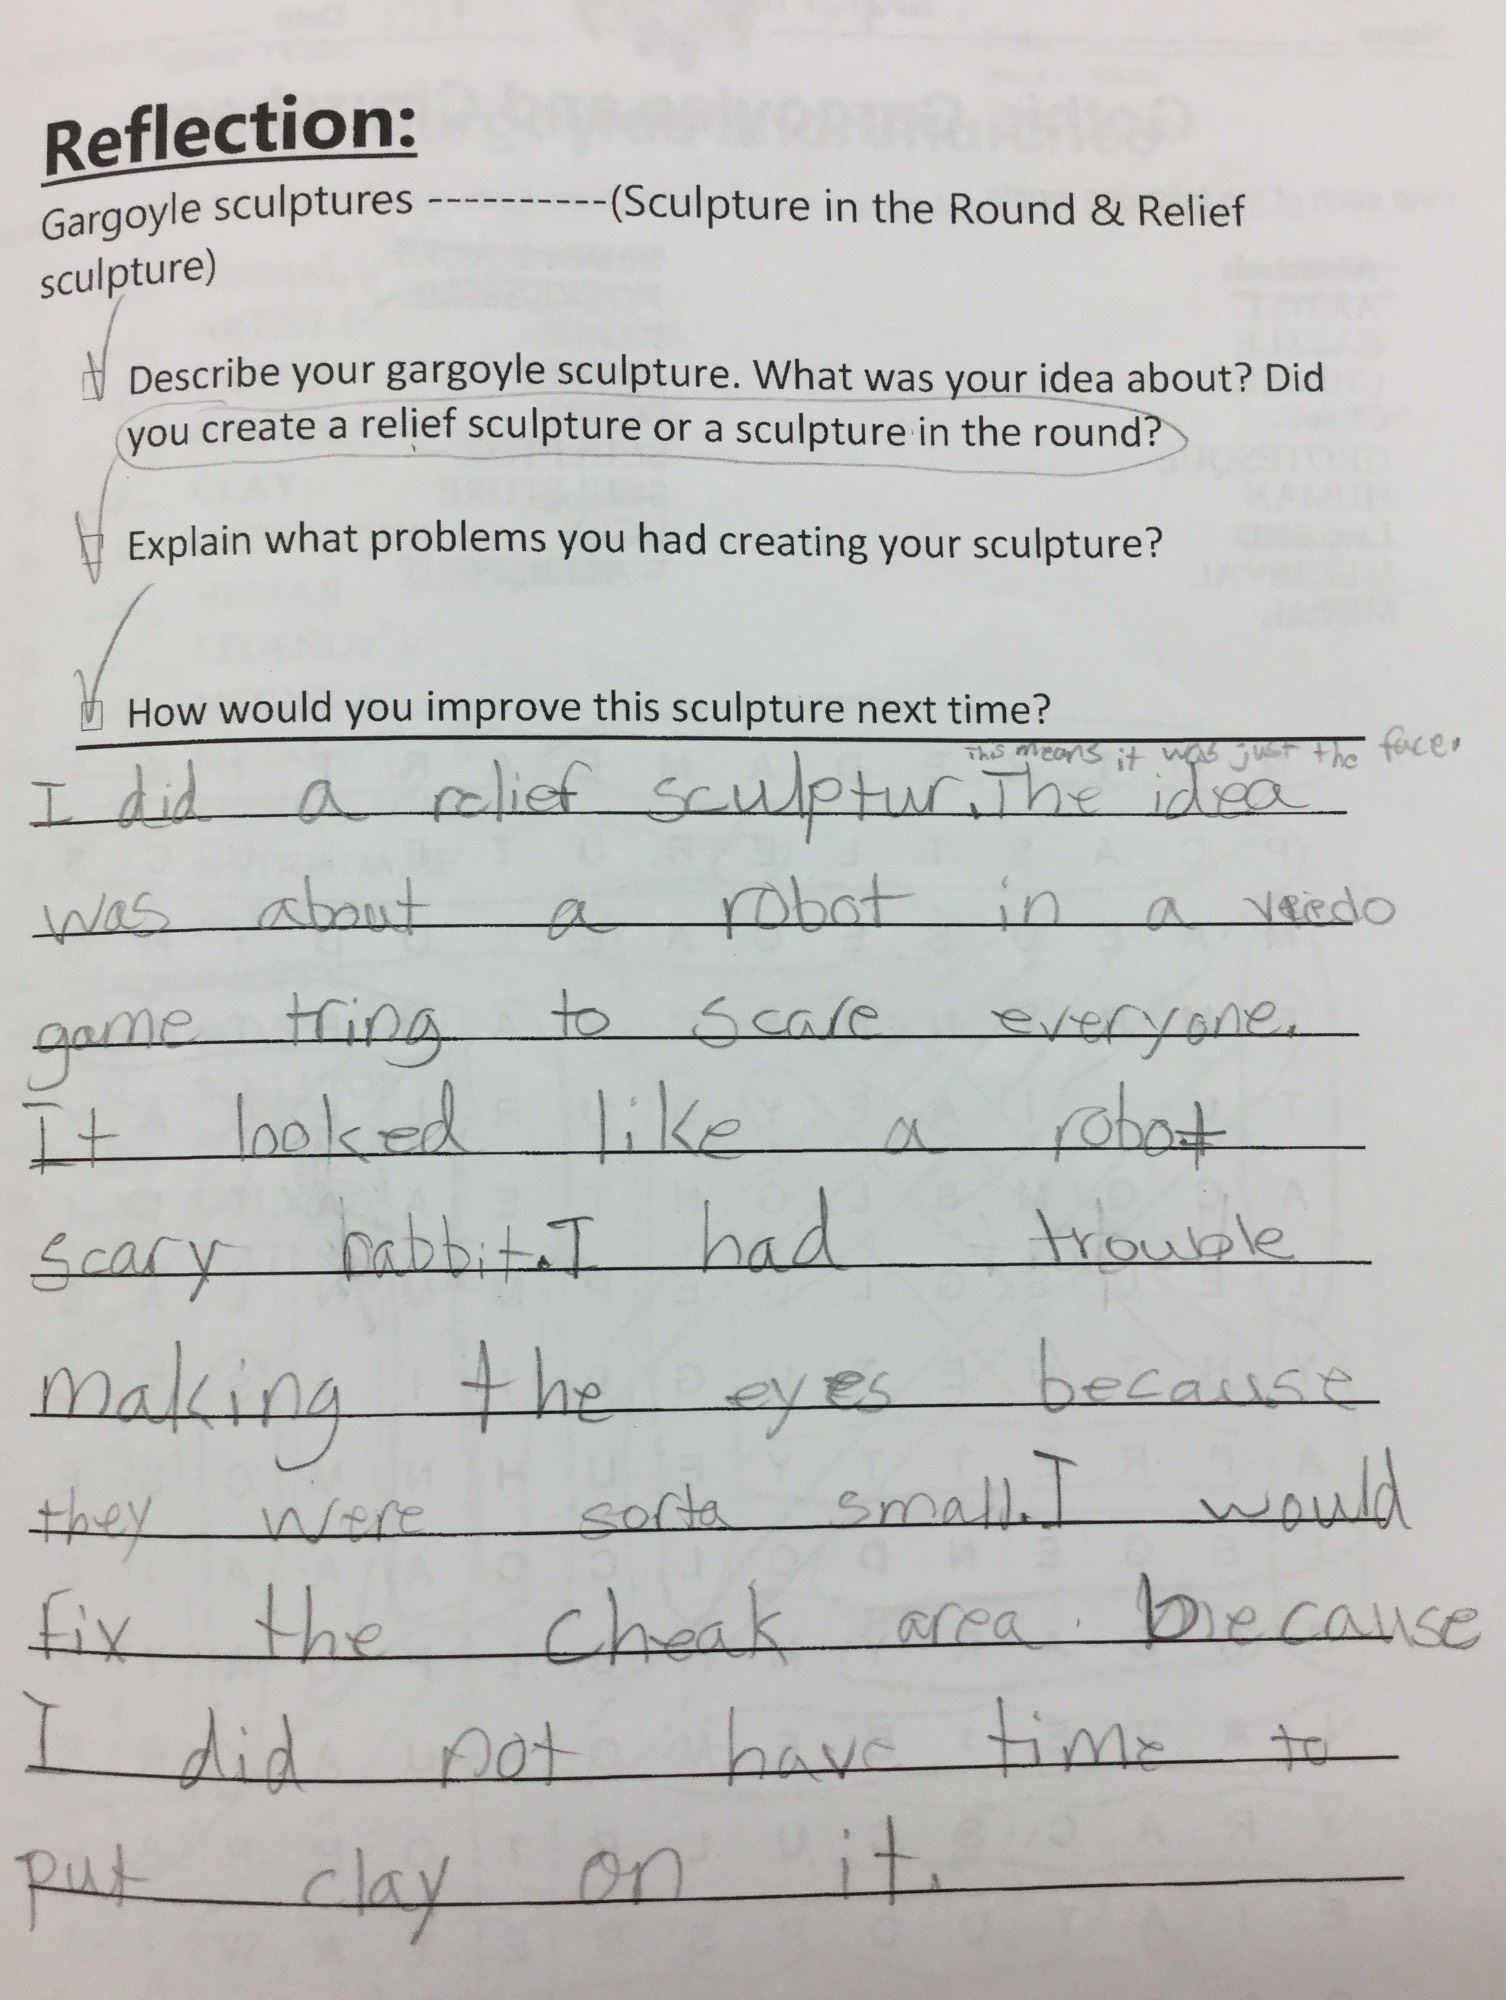 Reflection:
Gargoyle sculptures ----------(Sculpture in the Round & Relief
sculpture)
Describe your gargoyle sculpture. What was your idea about? Did
you create a relief sculpture or a sculpture in the round?
Explain what problems you had creating your sculpture?
How would you improve this sculpture next time?
This means it was just the face.
I did a relief sculptur. The idea
was about a robot in a
game tring to scare everyone.
It looked like a robot
scary babbit. I had trouble
making the eyes because
they were sorta small. I would
fix the cheak area because
I did not have time to
put clay on it.